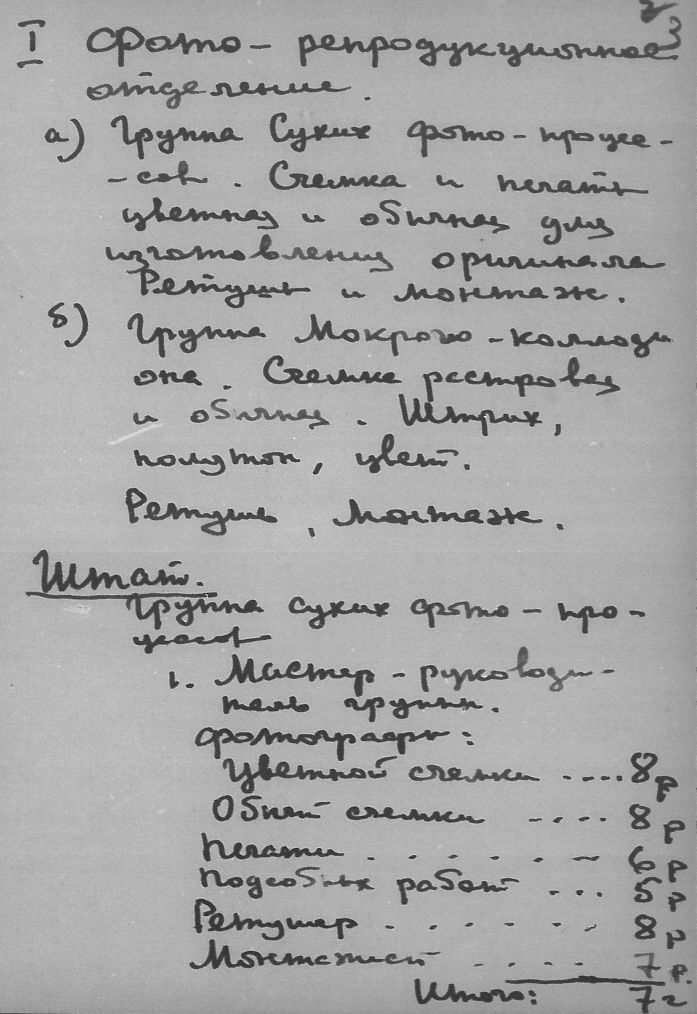 2
3
I Фото-репродукционное
отделение.
а) Группа Сухих фото-процес-
-сов. Съемка и печать
цветная и обычная для
изготовления оригинала
Ретушь и монтаж.
б) Группа Мокрого-коллоди
она. Съемка растровая
и обычная. Штрих,
полутон, цвет.
Ретушь, монтаж.
Штат.
Группа сухих фото-про-
цессов
1. Мастер-руководи-
тель группы.
Фотографы:
Цветной съемки ....8 р
съемки .... 8 р
Печати . . . . . . 6 р
Подсобных работ ... 5 р
Ретушер . . . . . . 8 р
Монтажист . . . . 7 р.
Итого: 7 ч